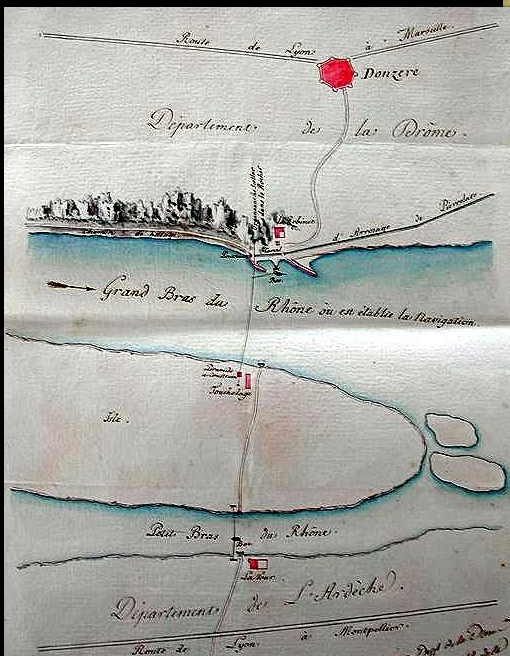 Route de Lyon à Marseille.
Donzere
Département de la Drôme.
Robinet
d'Arrosage de Pierrelate
Bac
Grand Bras du Rhône où est établie la Navigation.
Pyramide à Construire
Touchelage
Isle.
Petit Bras du Rhône.
Bac
La Tour
Département de L'Ardèche.
Route de Lyon à Montpellier.